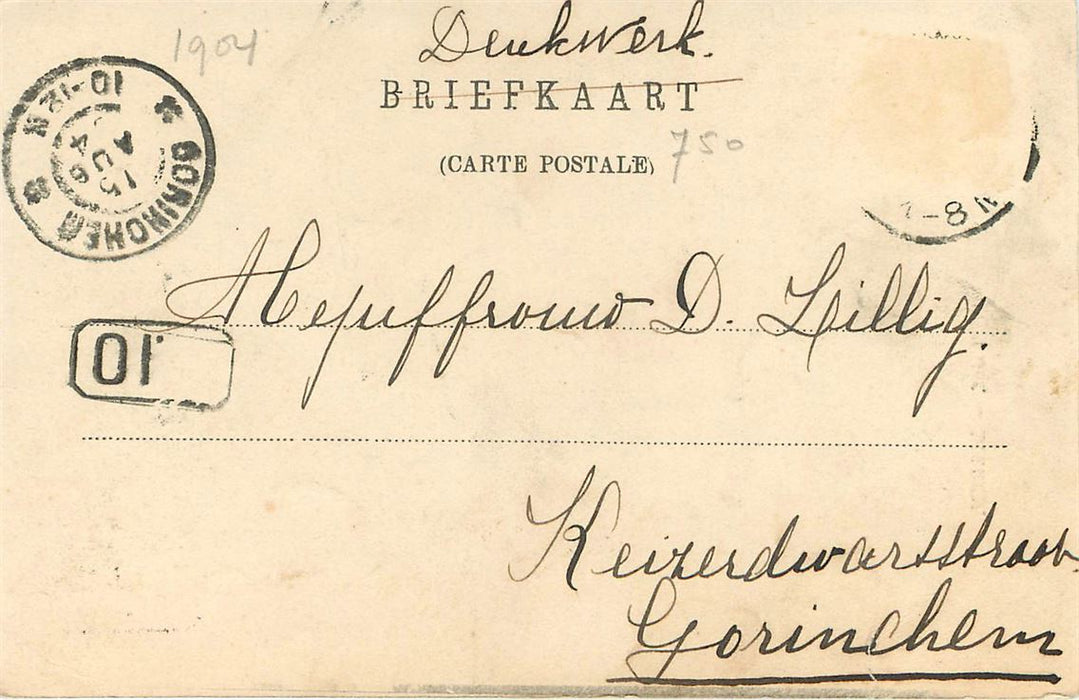 1904
Drukwerk.
BRIEFKAART
(CARTE POSTALE)
750
GORINCHEM
15 AUG
10-12 N
-8 N
Mejuffrouw D. Hillig.
10
Keizerdwarsstraat.
Gorinchem